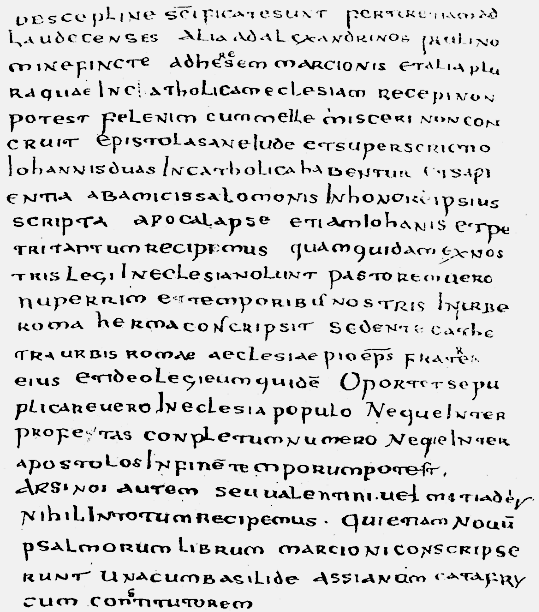 DESCEPLINE SCĪFICATE SUNT FERTUR ETIAM AD
LAUDECENSES ALIA AD ALEXANDRINOS PAULINO
MINE FINCTE AD HERESEM MARCIONIS ET ALIA PLU
RA QUAE IN CATHOLICAM ECLESIAM RECEPI NON
POTEST FEL ENIM CUM MELLE MISCERI NON CON
CRUIT EPISTOLA SANE IUDE ET SUPERSCRICTIO
IOHANNIS DUAS IN CATHOLICA HABENTUR ET SAPI
ENTIA AB AMICIS SALOMONIS IN HONORE IPSIUS
SCRIPTA APOCALAPSE ETIAM IOHANIS ET PE
TRI TANTUM RECIPEMUS QUAM QUIDAM EX NOS
TRIS LEGI IN ECLESIA NOLUNT PASTOREM UERO
NUPERRIM ET TEMPORIBUS NOSTRIS IN URBE
ROMA HERMA CONSCRIPSIT SEDENTE CATHE
TRA URBIS ROMAE AECLESIAE PIO EPS̄ FRATER
EIUS ET IDEO LEGI EUM QUIDĒ OPORTET SE PU
PLICARE UERO IN ECLESIA POPULO NEQUE INTER
PROFETAS CONPLETUM NUMERO NEQUE INTER
APOSTOLOS IN FINĒ TEMPORUM POTEST.
ARSINOI AUTEM SEU UALENTINI. UEL MITIADEIS
NIHIL IN TOTUM RECIPEMUS. QUI ETIAM NOUŪ
PSALMORUM LIBRUM MARCIONI CONSCRIPSE
RUNT UNA CUM BASILIDE ASSIANOM CATAFRY
CUM CONSTITUTOREM